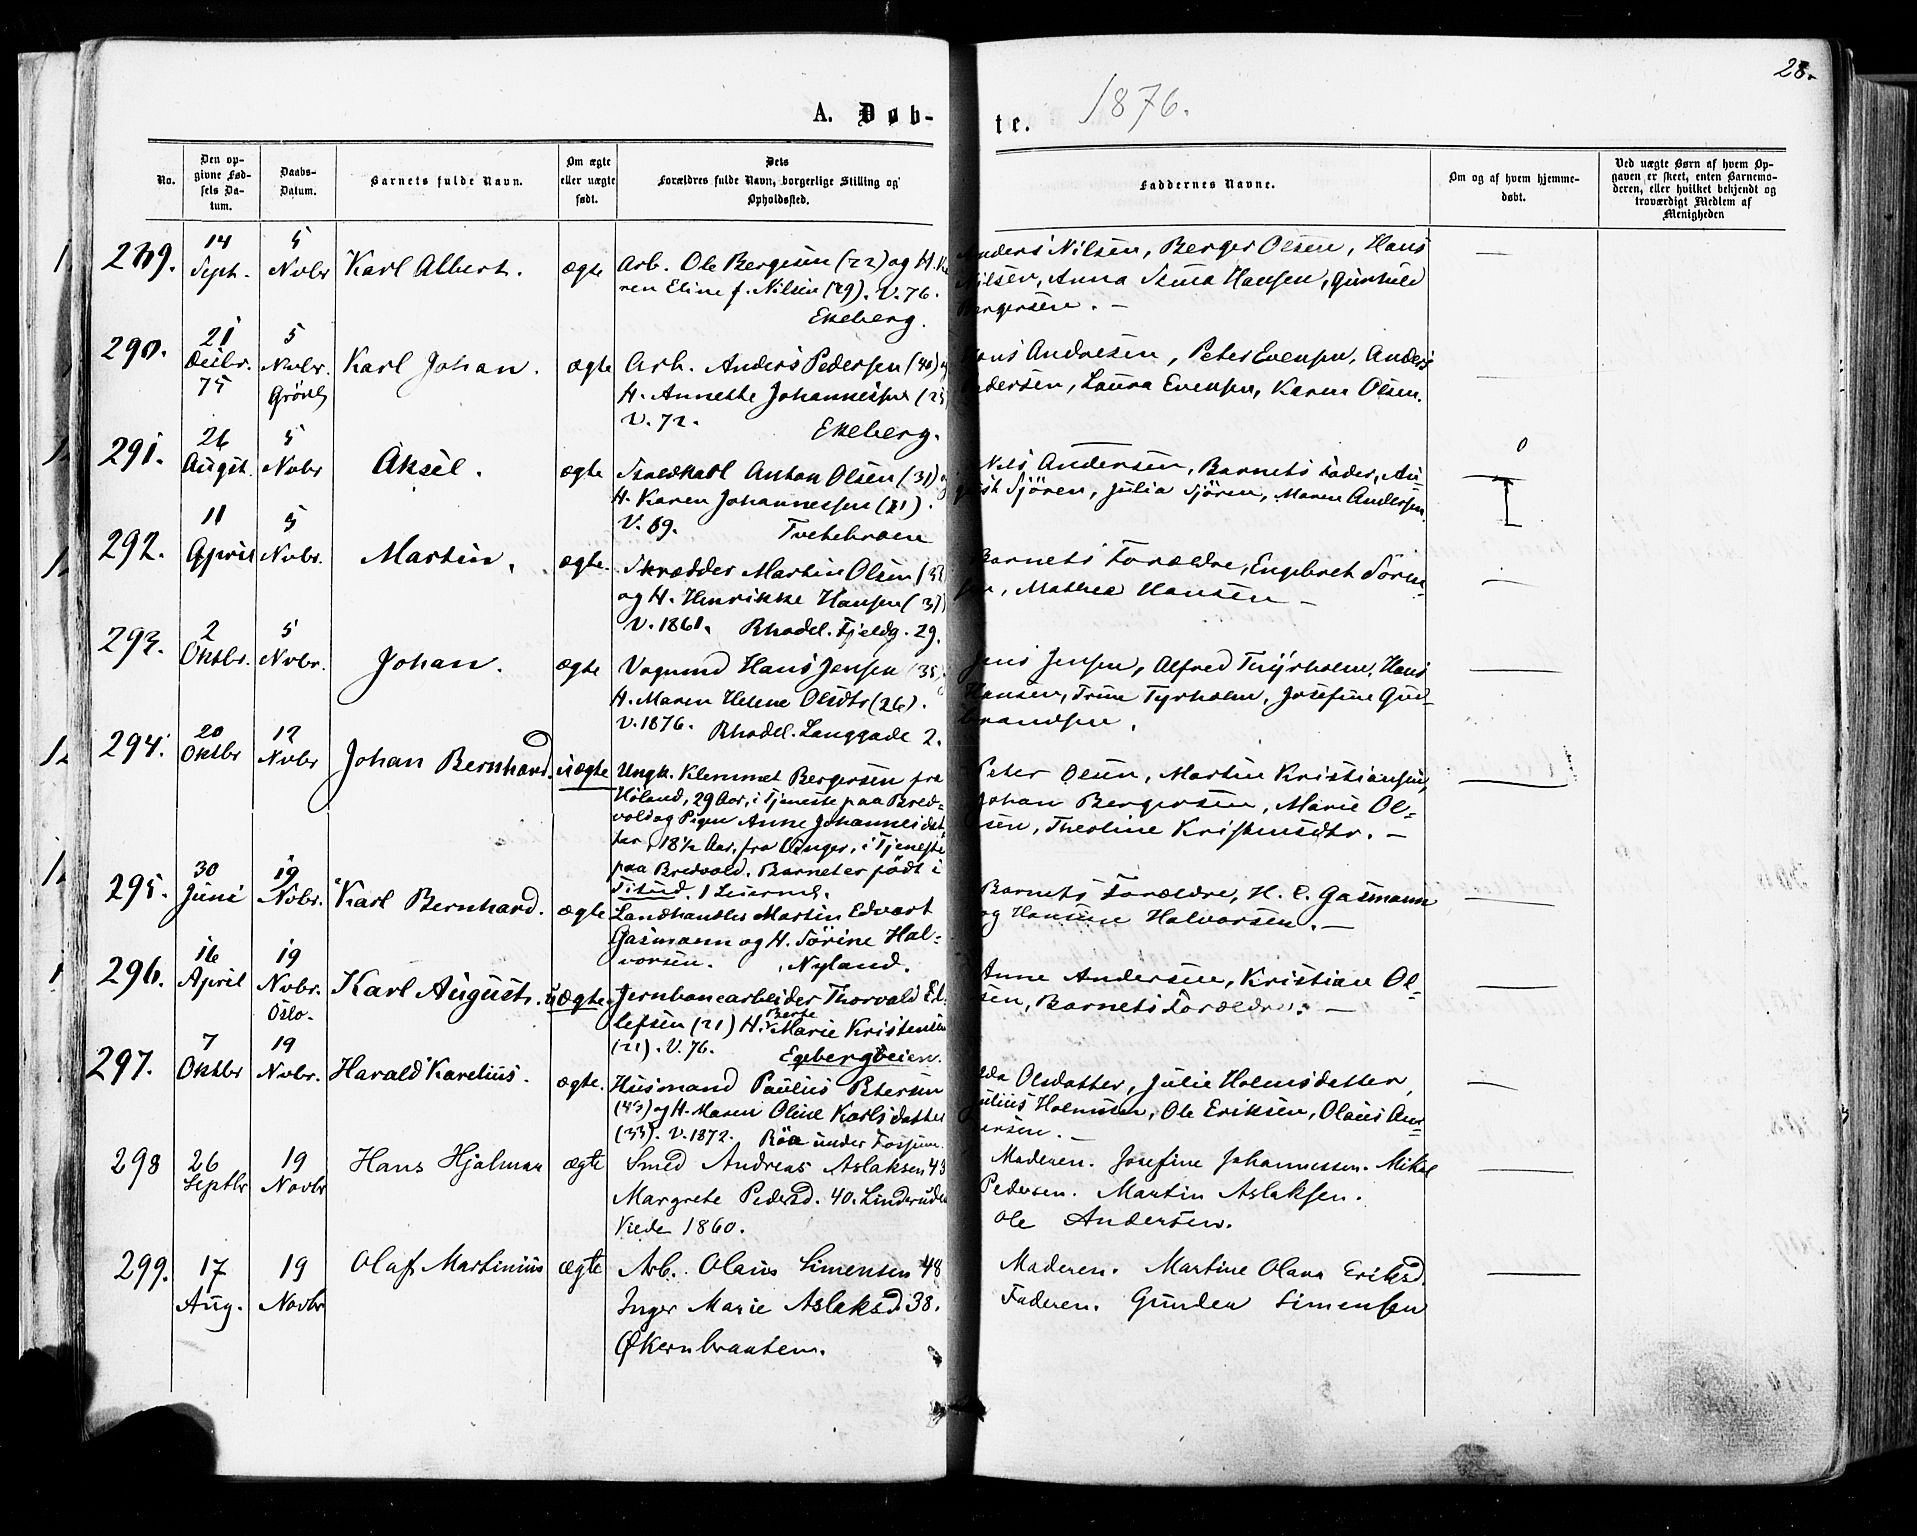 28.
A. Døb-
te.
1876.
No.
Den op-
givne Fød-
sels Da-
tum.
Daabs-
Datum.
Barnets fulde Navn.
Om ægte
eller uægte
født.
Dets
Forældres fulde Navn, borgerlige Stilling og
Opholdssted.
Faddernes Navne.
Om og af hvem hjemme-
døbt.
Ved uægte Børn af hvem Op-
gaven er skeet, enten Barnemo-
deren, eller hvilket bekjendt og
troværdigt Medlem af
Menigheden
289.
14
Septr.
5
Nvbr
Karl Albert.
ægte
Arb. Ole Bergesen (22) og H. Ka
ren Eline f. Nilsen (29). V. 76.
Ekeberg.
Anders Nilsen, Berger Olsen, Hans
Nilsen, Anna Hansen, Gunhild
Bergersen. —
290.
21
Decbr.
75
5
Nvbr.
Grönl.
Karl Johan.
ægte
Arb. Anders Pedersen (40) og
H. Annette Johannessen (25)
V. 72.
Ekeberg.
Hans Andresen, Peter Evensen, Anders
Pedersen, Laura Evensen, Karen Olsen.
291.
26
August.
5
Nvbr
Aksel.
ægte
Anton Olsen (31) og
H. Karen Johannessen (31).
V. 69.
Tvetebroen
Nils Andersen, Barnets Fader, Au-
gust Sjören, Julia Sjören, Maren Andersen.
0
292.
11
April
5
Nvbr.
Martin.
ægte.
Skrædder Martin Olsen
og H. Henrikke Hansen (37)
V. 1861. Rhodel. Fjeldg. 29.
Barnets Forældre, Engebret Sören-
sen, Mathea Hansen —
293.
2
Oktbr.
5
Nvbr.
Johan.
ægte
Vognmd Hans Jensen (35).
H. Maren Helene Olsdtr (26).
V. 1876. Rhodel. Langgade 2.
Jens Jensen, Alfred Thyrholm, Hans
Hansen, Trine Tyrholm, Josefine Gud-
brandsen.
294.
20
Oktbr
12
Nvbr
Johan Bernhard.
uægte
Ungk. Klemmet Bergersen fra
Höland, 29 Aar, i Tjeneste paa Bred-
vold og Pigen Anne Johannesdat-
ter, 18½ Aar, fra Urnger, i Tjeneste
paa Bredvold. Barnet er født i
1 Leierml.
Peter Olsen, Martin Kristiansen,
Johan Bergersen, Marie Ol-
sen, Theoline Kristensdtr. —
295.
30
Juni
19
Nvbr.
Karl Bernhard.
ægte
Landhandler Martin Edvart
Gasmann og H. Sörine Hal-
vorsen. Nyland.
Barnets Forældre, H. C. Gasmann
og Hansine Halvorsen. —
296.
16
April
19
Nvbr.
Oslo.
Karl August.
uægte
Jernbanearbeider Thorvald Ed-
lefsen (21) H. Berte Marie Kristensen
(21). V. 76. Egebergveien.
Anne Andersen, Kristian Ol-
sen, Barnets Forældre. —
297.
7
Oktbr
19
Nvbr.
Harald Karelius.
ægte.
Husmand Paulus Petersen
(43) og H. Maren Oline Karlsdatter
(33). V. 1872. Röa under Fossum.
Olsdatter, Julie Holmsdatter,
Julius Holmsen, Ole Eriksen, Olaus An-
dersen. —
298
26
Septbr
19
Novbr
Hans Hjalmar
ægte
Smed Andreas Aslaksen 43
Margrete Pedersd. 40. Linderuden
Viede 1860.
Moderen. Josefine Johannessen. Mikal
Pedersen. Martin Aslaksen.
Ole Andersen.
299.
17
Aug.
19
Novbr
Olaf Martinius
ægte
Arb. Olaus Simensen 48
Inger Marie Aslaksd. 38.
Økernbraaten.
Moderen. Martine Olava Eriksd.
Faderen. Gunder Simensen